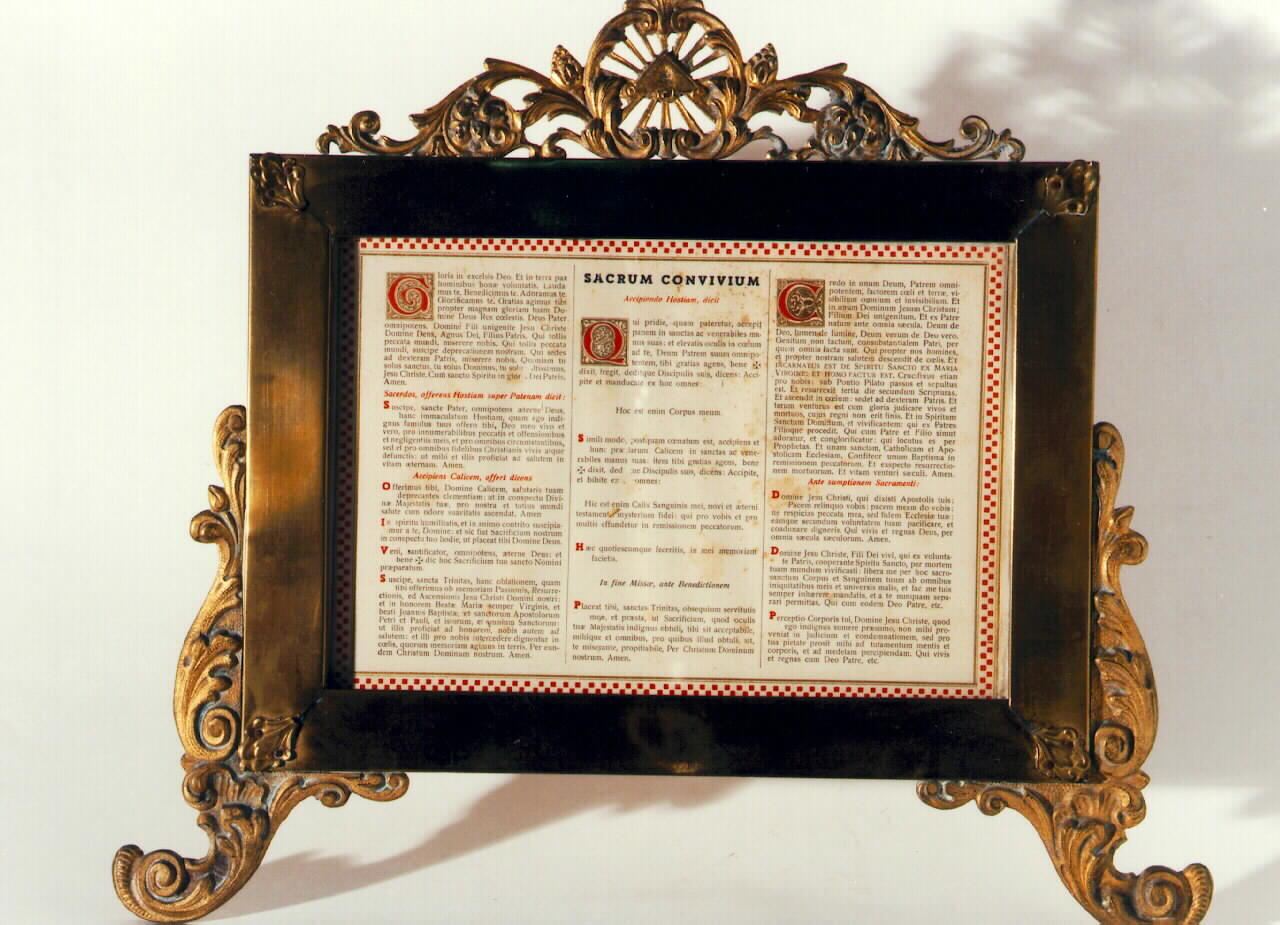 Gloria in excelsis Deo. Et in terra pax
hominibus bonæ voluntatis. Lauda
mus te. Benedicimus te. Adoramus te.
Glorificamus te. Gratias agimus tibi
propter magnam gloriam tuam Do-
mine Deus Rex cœlestis. Deus Pater
omnipotens. Domine Fili unigenite Jesu Christe
Domine Deus, Agnus Dei, Filius Patris. Qui tollis
peccata mundi, miserere nobis. Qui tollis peccata
mundi, suscipe deprecationem nostram. Qui sedes
ad dexteram Patris, miserere nobis. Quoniam tu
solus sanctus, tu solus Dominus, tu solus
Jesu Christe. Cum sancto Spiritu in Dei Patris.
Amen.
Sacerdos, offerens Hostiam super Patenam dicit:
Suscipe, sancte Pater, omnipotens æterne Deus,
hanc immaculatam Hostiam, quam ego indi-
gnus famulus tuus offero tibi, Deo meo vivo et
vero, pro innumerabilibus peccatis et offensionibus
et negligentiis meis, et pro omnibus circumstantibus,
sed et pro omnibus fidelibus Christianis vivis atque
defunctis: ut mihi et illis proficiat ad salutem in
vitam æternam. Amen.
Accipiens Calicem, offert dicens
Offerimus tibi, Domine Calicem, salutaris tuam
deprecantes clementiam: ut in conspectu Divi-
næ Majestatis tuæ, pro nostra et totius mundi
salute cum odore suavitatis ascendat. Amen
In spiritu humilitatis, et in animo contrito suscipia-
mur a te, Domine: et sic fiat Sacrificium nostrum
in conspectu tuo hodie, ut placeat tibi Domine Deus.
Veni, santificator, omnipotens, æterne Deus: et
bene ✠ dic hoc Sacrificium tuo sancto Nomini
præparatum.
Suscipe, sancta Trinitas, hanc oblationem, quam
tibi offerimus ob memoriam Passionis, Resurre-
ctionis, ed Ascensionis Jesu Christi Domini nostri:
et in honorem Beatæ Mariæ semper Virginis, et
beati Joannis Baptistæ, et sanctorum Apostolorum
Petri et Pauli, et istorum, et omnium Sanctorum:
ut illis proficiat ad honorem, nobis autem ad
salutem: et illi pro nobis intercedere dignentur in
cœlis, quorum memoriam agimus in terris. Per eun-
dem Christum Dominum nostrum. Amen.
SACRUM CONVIVIUM
Accipiendo Hostiam, dicit
Qui pridie, quam pateretur, accepit
panem in sanctas ac venerabiles ma-
nus suas: et elevatis oculis in cœlum
ad te, Deum Patrem suum omnipo-
tentem, tibi gratias agens, bene ✠
dixit, fregit, deditque Discipulis suis, dicens: Acci-
pite et manducate ex hoc omnes
Hoc est enim Corpus meum.
Simili modo, postquam cœnatum est, accipiens et
hunc præclarum Calicem in sanctas ac vene-
rabiles manus suas: item tibi gratias agens, bene
✠ dixit, ded que Discipulis suis, dicens: Accipite,
et bibite ex omnes:
Hic est enim Calix Sanguinis mei, novi et æterni
testamenti, mysterium fidei: qui pro vobis et pro
multis effundetur in remissionem peccatorum.
Hæc quotiescumque feceritis, in mei memoriam
facietis.
In fine Missæ, ante Benedictionem
Placeat tibi, sanctas Trinitas, obsequium servitutis
meæ, et præsta, ut Sacrificium, quod oculis
tuæ Majestatis indignus obtuli, tibi sit acceptabile,
mihique et omnibus, pro quibus illud obtuli, sit,
te miserante, propitiabile, Per Christum Dominum
nostrum. Amen.
Credo in unum Deum, Patrem omni-
potentem, factorem cœli et terræ, vi-
sibilium omnium et invisibilium. Et
in unum Dominum Jesum Christum;
Filium Dei unigenitum. Et ex Patre
natum ante omnia sæcula. Deum de
Deo, lumen de lumine, Deum verum de Deo vero.
Genitum, non factum, consubstantialem Patri, per
quem omnia facta sunt. Qui propter nos homines,
et propter nostram salutem descendit de cœlis. ET
INCARNATUS EST DE SPIRITU SANCTO EX MARIA
VIRGINE: ET HOMO FACTUS EST. Crucifixus etian
pro nobis: sub Pontio Pilato passus et sepultus
est. Et resurrexit tertia die secundum Scripturas.
Et ascendit in cœlum: sedet ad dexteram Patris. Et
iterum venturus est cum gloria judicare vivos et
mortuos, cujus regni non erit finis. Et in Spiritum
Sanctum Dominum, et vivificantem: qui ex Patres
Filioque procedit. Qui cum Patre et Filio simut
adoratur, et conglorificatur: qui locutus es per
Prophetas. Et unam sanctam, Catholicam et Apo-
stolicam Ecclesiam, Confiteor unum Baptisma in
remissionem peccatorum. Et exspecto resurrectio-
nem mortuorum. Et vitam venturi sæculi. Amen.
Ante sumptionem Sacramenti:
Domine Jesu Christi, qui dixisti Apostolis tuis:
Pacem relinquo vobis: pacem meam do vobis:
ne respicias peccata mea, sed fidem Ecclesiæ tuæ:
eamque secundum voluntatem tuam pacificare, et
coadunare digneris. Qui vivis et regnas Deus, per
omnia sæcula sæculorum. Amen.
Domine Jesu Christe, Fili Dei vivi, qui ex volunta-
te Patris, cooperante Spiritu Sancto, per mortem
tuam mundum vivificasti: libera me per hoc sacro-
sanctum Corpus et Sanguinem tuum ab omnibus
iniquitatibus meis et universis malis, et fac me tuis
semper inhærere mandatis, et a te nunquam sepa-
rari permittas. Qui cum eodem Deo Patre, etc.
Perceptio Corporis tui, Domine Jesu Christe, quod
ego indignus sumere præsumo, non mihi pro-
veniat in judicium et condemnationem, sed pro
tua pietate prosit mihi ad tutamentum mentis et
corporis, et ad medelam percipiendam. Qui vivis
et regnas cum Deo Patre, etc.